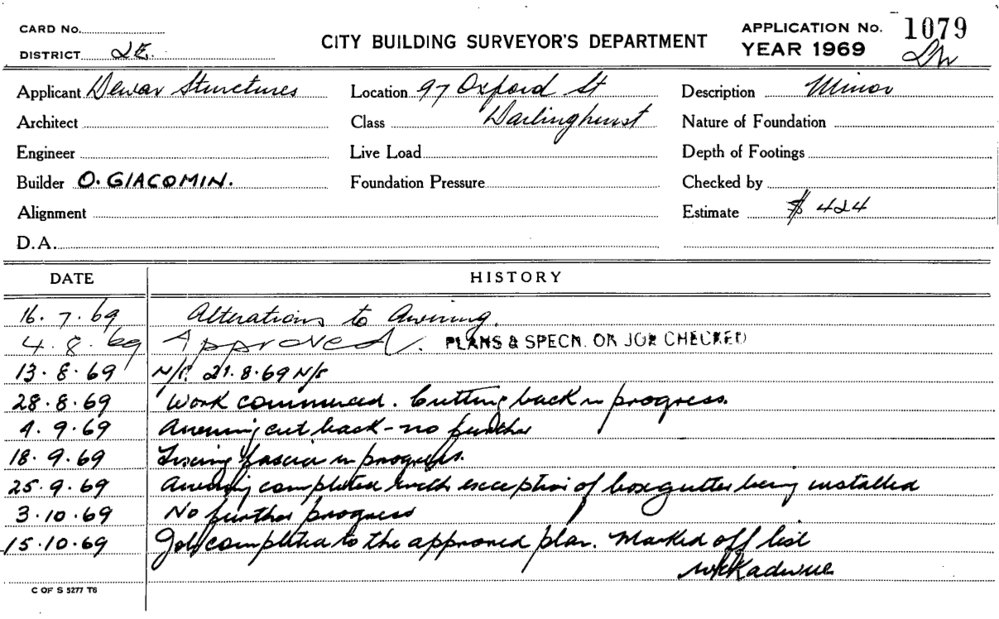 CARD No.
DISTRICT 2E.
CITY BUILDING SURVEYOR'S DEPARTMENT
APPLICATION No. 1079
YEAR 1969
Applicant Dewar Structures
Location 97 Oxford St
Description Minor
Architect
Class Darlinghurst
Nature of Foundation
Engineer
Live Load
Depth of Footings
Builder O. GIACOMIN.
Foundation Pressure
Checked by
Alignment
Estimate $ 424
D.A.
DATE HISTORY
16.7.69 Alterations to Awning.
4.8.69 Approved. PLANS & SPECN. ON JOB CHECKED
13.8.69 N/S. 21.8.69 N/S
28.8.69 Work commenced. Cutting back in progress.
4.9.69 Awning cut back - no further
18.9.69 Fixing fascia in progress.
25.9.69 Awning completed with exception of box gutter being installed
3.10.69 No further progress
15.10.69 Job completed to the approved plan. Marked off list
C OF S 5277 T6